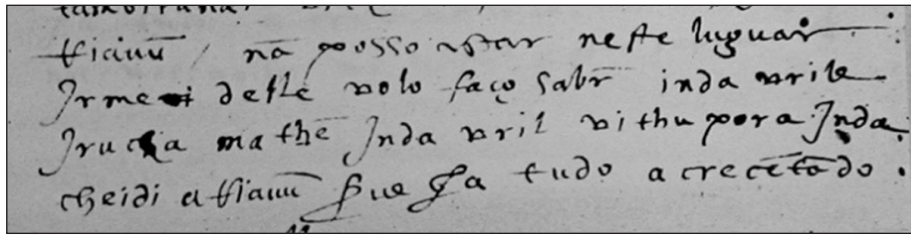 ttianū, nā posso estar neste luguar
Irme deste volo faço sabr̄ inda vrile
mathē Inda vril vithupora Inda
cheidi attianū que ja tudo acrecētado.